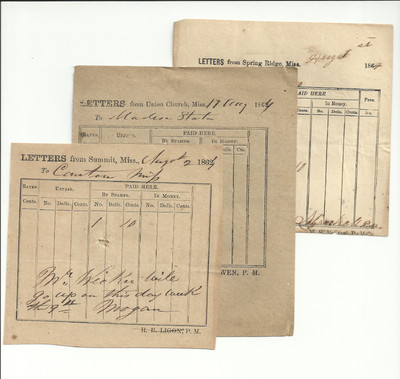 LETTERS from Spring Ridge, Miss. August 1st 186
PAID HERE. Free.
In Money.
No. Dolls. Cents. No.
LETTERS from Union Church, Miss. 17 Aug 1864
To Madison Station
RATES. PAID HERE.
By Stamps. In Money.
WEN, P. M.
LETTERS from Summit, Miss., August 2 1864
To Canton Miss
RATES. UNPAID. PAID HERE.
By Stamps. In Money.
Cents. No. Dolls. Cents. No. Dolls. Cents. No. Dolls. Cents.
1 10
Mr. will
go up on this day week
the 9th Mogan
R. R. LIGON, P. M.